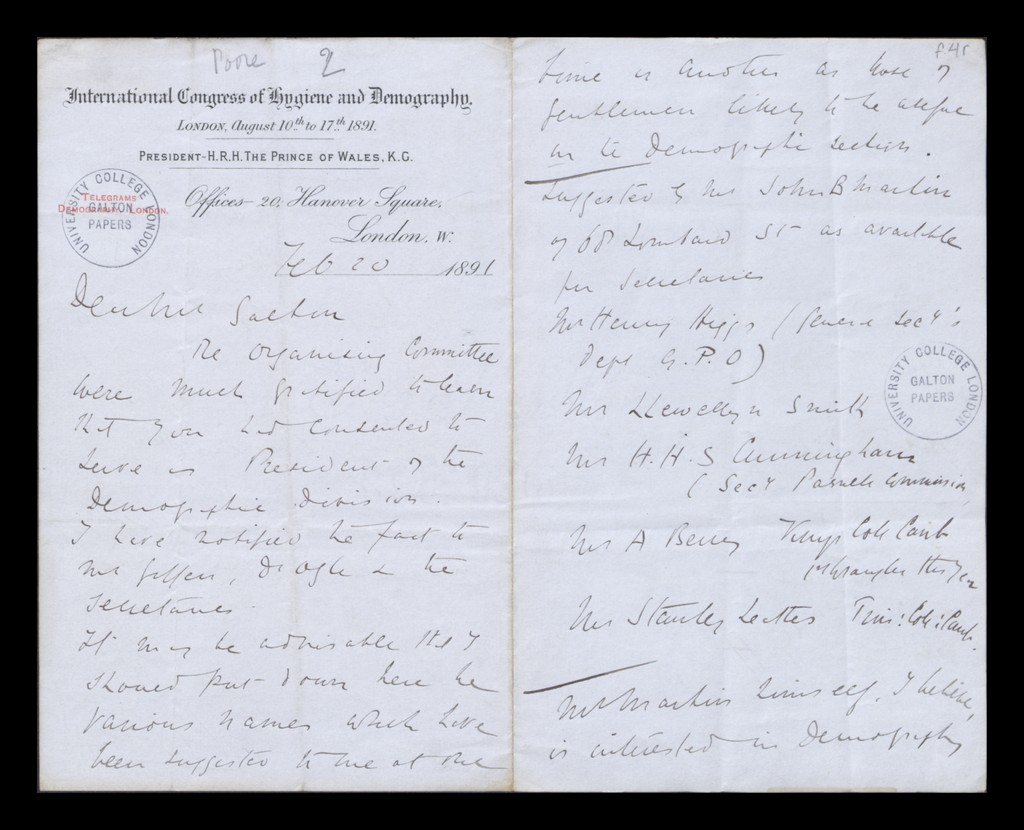 Poore 2
International Congress of Hygiene and Demography.
LONDON, August 10th to 17th 1891.
PRESIDENT-H.R.H. THE PRINCE OF WALES, K.G.
TELEGRAMS
DEMOGRAPHY, LONDON.
UNIVERSITY COLLEGE LONDON
GALTON
PAPERS
Offices- 20, Hanover Square,
London. W.
Feb 20 1891
Dear Mr Galton
The Organising Committee
were much gratified to learn
that you had consented to
serve as President of the
Demographic Division.
I have notified the fact to
Mr Giffen, Dr Ogle & the
Secretaries.
It may be advisable that I
should put down here the
various names which have
been suggested to me at one
f.4r
time or another as those of
gentlemen likely to be useful
in the Demographic section.
Suggested by Mr John B Martin
of 68 Lombard St as available
for Secretaries
Mr Henry Higgs (General Secy's
Dept G.P.O)
UNIVERSITY COLLEGE LONDON
GALTON
PAPERS
Mr Llewellyn Smith
Mr H.H.S Cunningham
(Secy Parnell Commission
Mr A Berry Kings Coll Camb
1st Wrangler this year
Mr Stanley Leathes Trin: Coll: Camb.
Mr Martin himself, I believe,
is interested in Demography